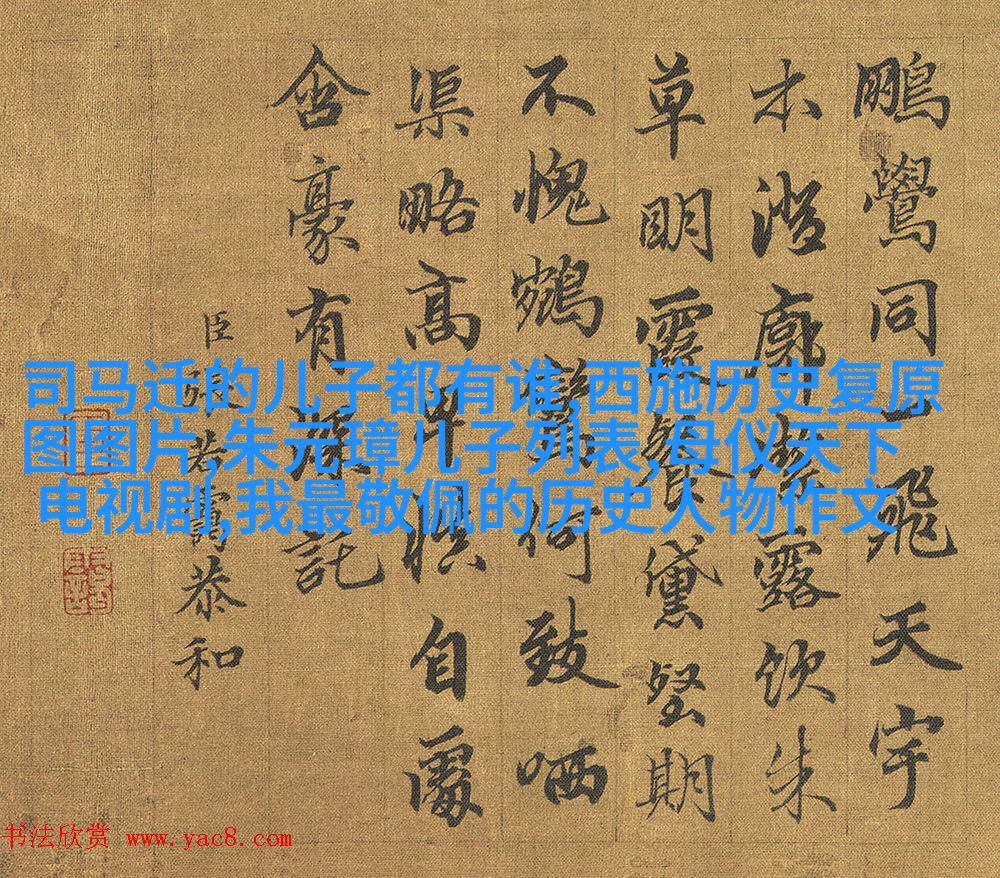 司马迁的儿子都有谁,西施历史复原
图图片,朱元璋儿子列表,母仪天下
电视剧,我最敬佩的历史人物作文
鵬鷽同一飛天宇
木澄廓露飲朱
草明霞餐黛壑期
不愧鵷鸞何致哂
渠略高卑自
含豪有託
臣張若靄恭和
书法欣赏 www.yac8.com